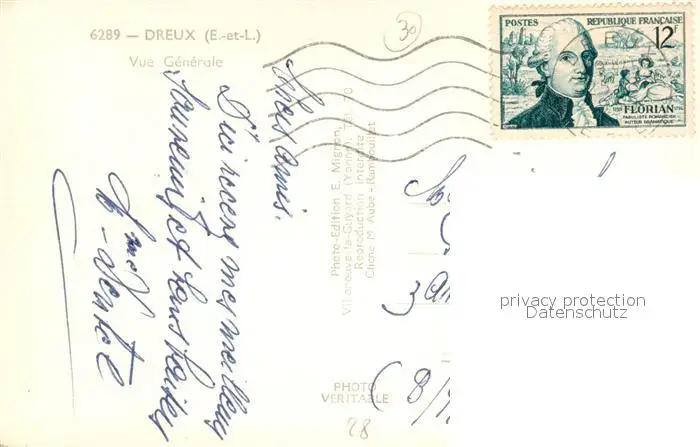 6289 — DREUX (E.-et-L.)
Vue Générale
30
POSTES RÉPUBLIQUE FRANÇAISE
12F
FLORIAN
FABULISTE ROMANCIER
AUTEUR DRAMATIQUE
Chers amis.
D'ici recevez mes meilleurs
Souvenirs et bons baisers
Photo-Edition E. Mignon
Villeneuve-la-Guyard (Yonne) Tél. 70
Reproduction interdite
Cliché M. Aube - Rambouillet
PHOTO
VERITABLE
privacy protection
Datenschutz
28